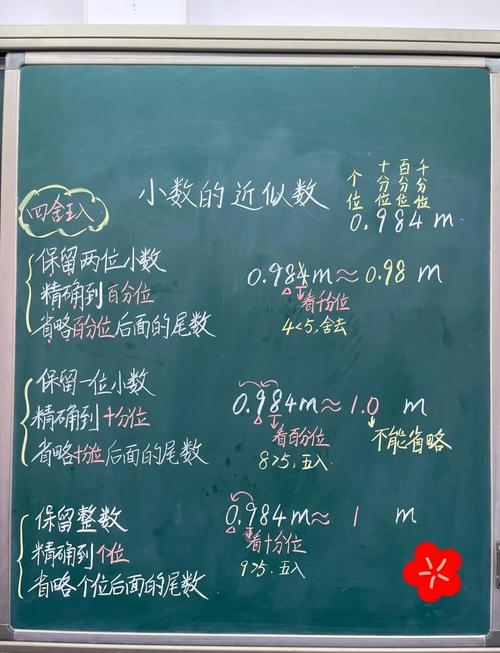 四舍五入
小数的近似数
个位
十分位
百分位
千分位
0.984m
保留两位小数
精确到百分位
省略百分位后面的尾数
0.984m≈0.98 m
看千分位
4<5,舍去
保留一位小数
精确到十分位
省略十分位后面的尾数
0.984m≈1.0 m
看百分位
不能省略
8>5,五入
保留整数
精确到个位
省略个位后面的尾数
0.984m≈1 m
看十分位
9>5,五入